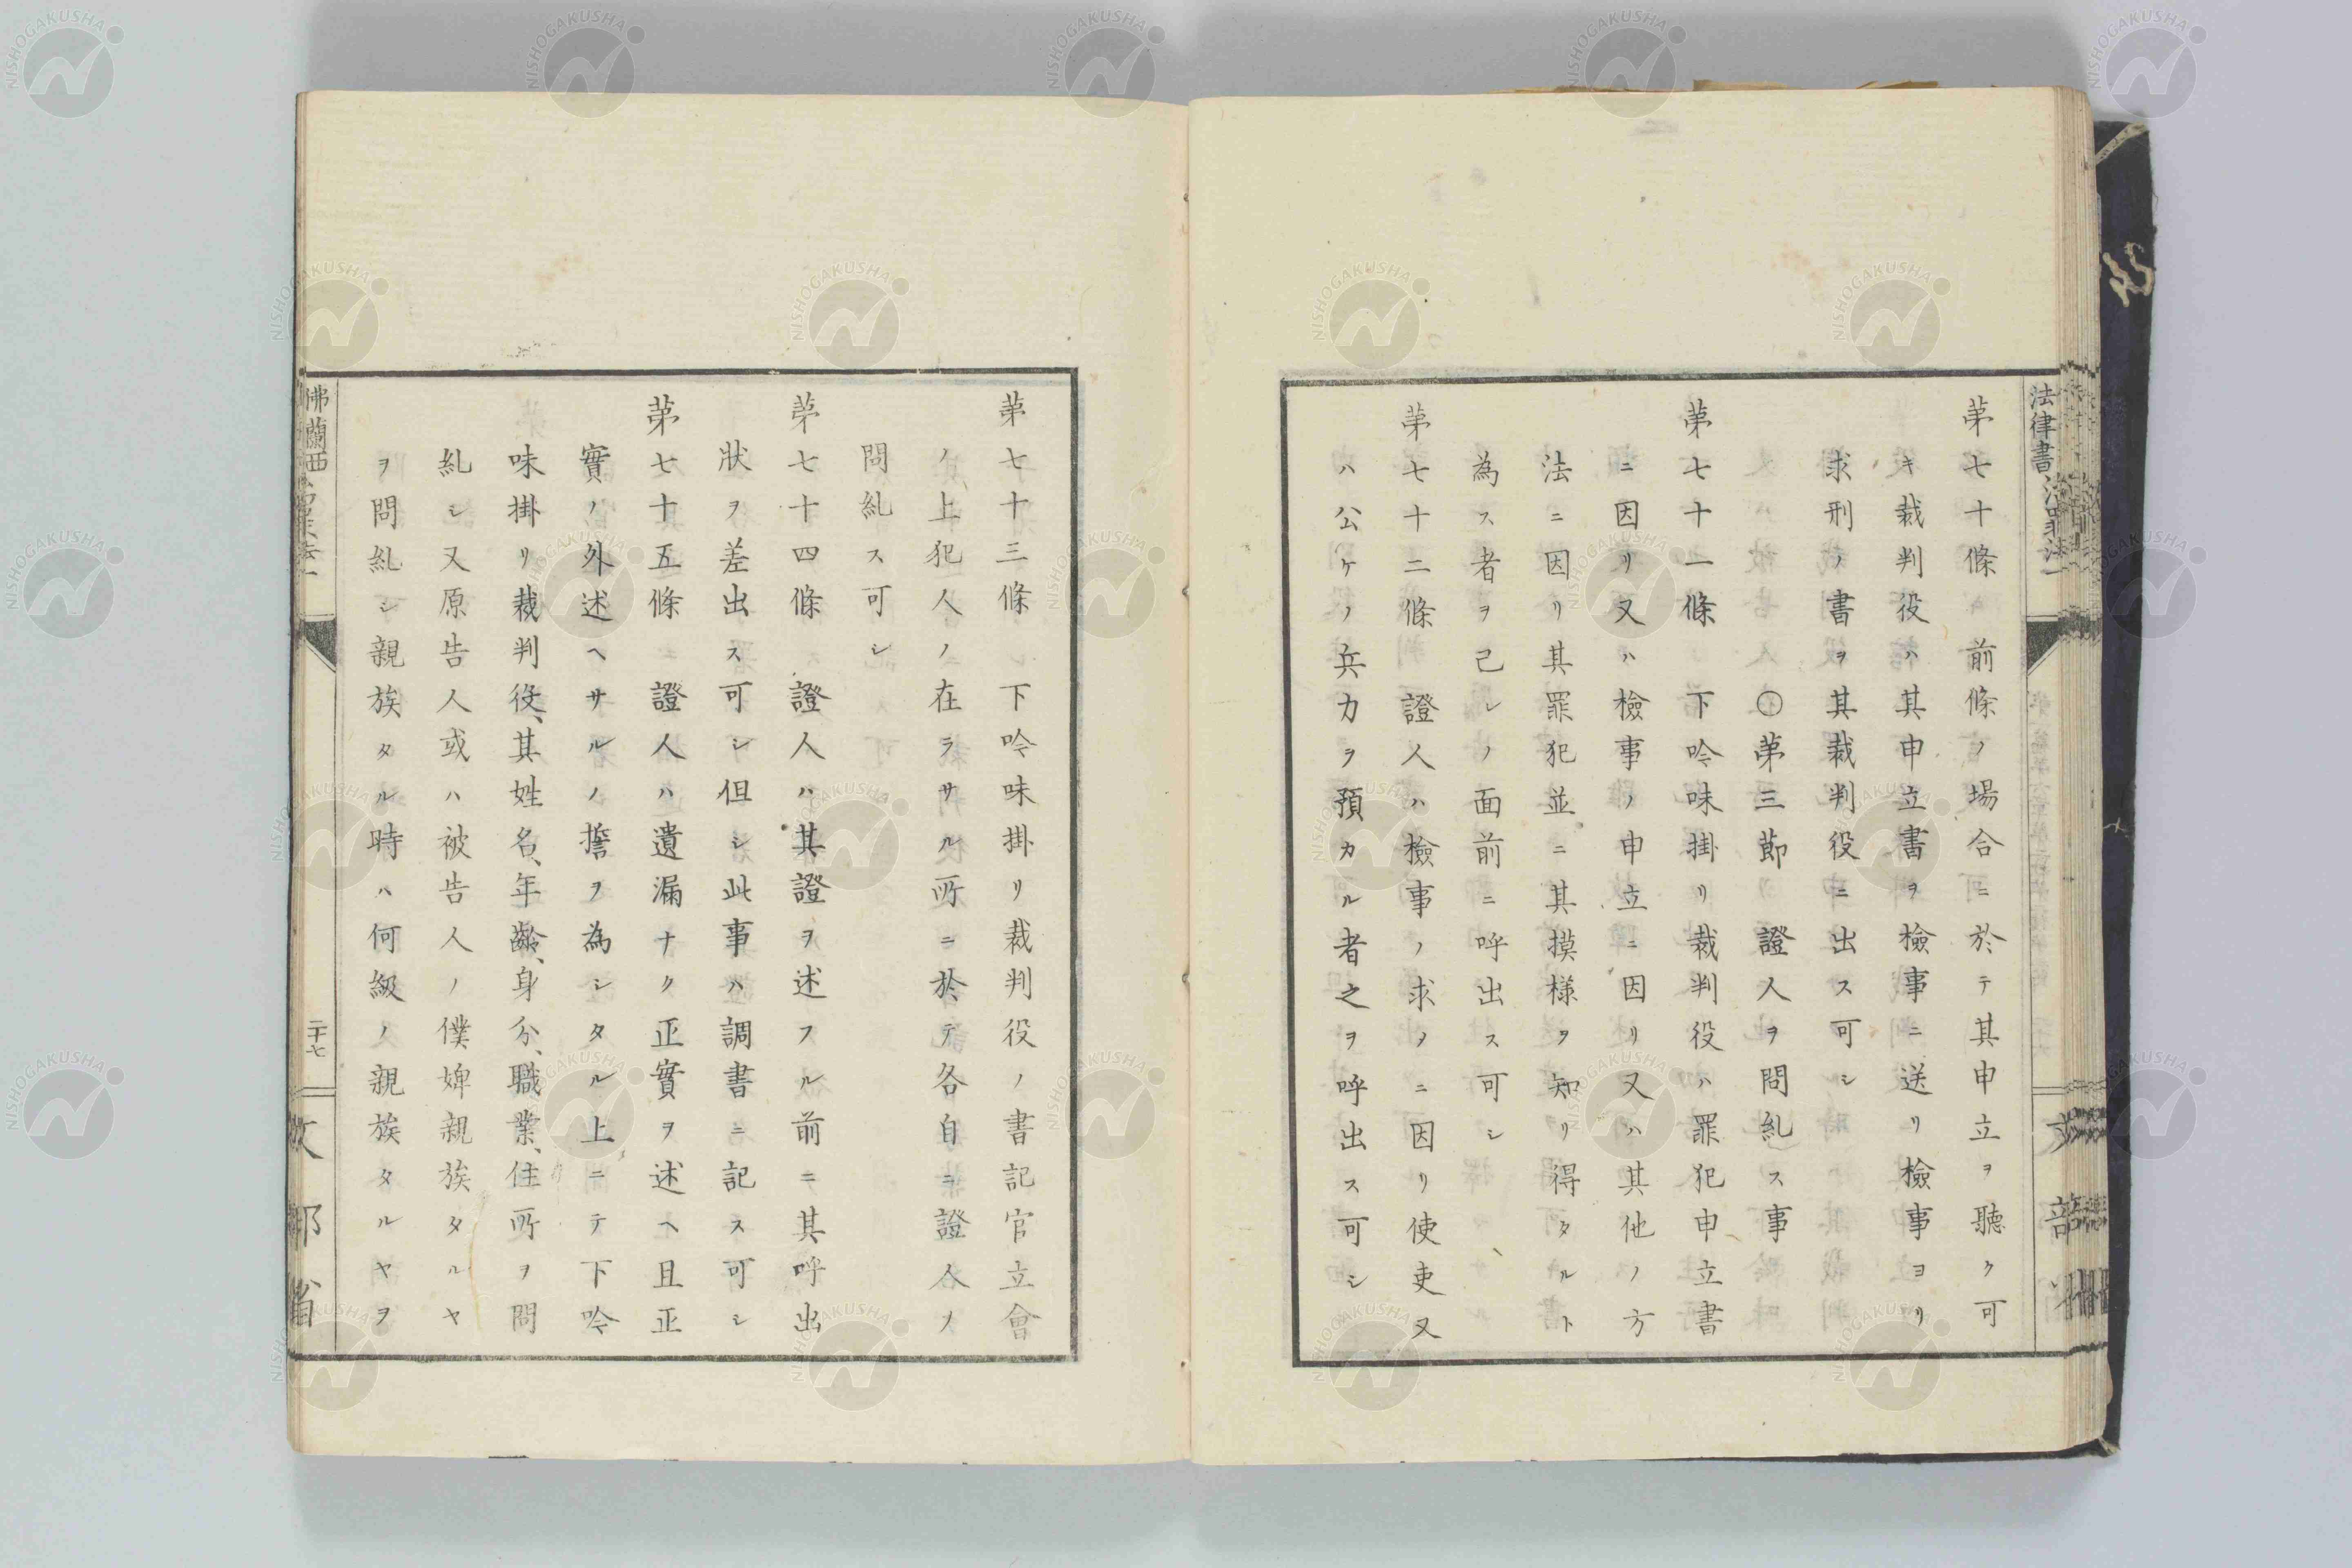 法律書
第七十條 前條ノ場合ニ於テ其申立ヲ聽ク可
キ裁判役ハ其申立書ヲ檢事ニ送リ檢事ヨリ
求刑ノ書ヲ其裁判役ニ出ス可シ
〇第三節 證人ヲ問糺ス事
第七十一條 下吟味掛リ裁判役ハ罪犯申立書
ニ因リ又ハ檢事ノ申立ニ因リ又ハ其他ノ方
法ニ因リ其罪犯並ニ其摸樣ヲ知リ得タルト
為ス者ヲ己レノ面前ニ呼出ス可シ
第七十二條 證人ハ檢事ノ求メニ因リ使吏又
ハ公ケノ兵力ヲ預カル者之ヲ呼出ス可シ
第七十三條 下吟味掛リ裁判役ノ書記官立會
ノ上犯人ノ在ラサル所ニ於テ各自ニ證人ノ
問糺ス可シ
第七十四條 證人ハ其證ヲ述フル前ニ其呼出
狀ヲ差出ス可シ但シ此事ハ調書ニ記ス可シ
第七十五條 證人ハ遺漏ナク正實ヲ述ヘ且正
實ノ外述ヘサルノ擔ヲ為シタル上ニテ下吟
味掛リ裁判役、其姓名、年齡、身分、職業、住所ヲ問
糺シ又原告人或ハ被告人ノ僕婢親族タルヤ
ヲ問糺シ親族タル時ハ何級ノ親族タルヤヲ
佛蘭西
二十七
文部省
NISHOGAKUSHA